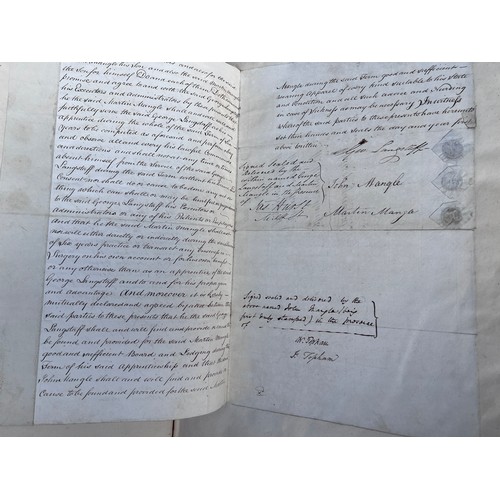 Mangle his Son and also the said
the Son for himself Do and each of them Doth
promise and agree to and with the said George
his Executors and administrators by these
faithfully serve the said George Langstaff as
apprentice during the whole of the said term
Years to be computed as aforesaid and
he the said Martin Mangle shall
and business and every his lawful
and directions and shall not at any time
absent himself from the service of the said George
Langstaff during the said Term
Consent nor shall do or cause to be done any
thing which can shall or may be
of the said George Langstaff his Executors
administrators or any of his Patients or
And that he the said Martin Mangle shall
nor will either directly or indirectly during the said
of Six years practice or transact any
Surgery on his own account or for his own benefit
or any other than as an apprentice of the said
George Langstaff and to and for his proper use
and advantage And moreover it is hereby
mutually declared and agreed by and between the
said parties to these presents that he the said George
Langstaff shall and will find and provide or cause to
be found and provided for the said Martin Mangle
good and sufficient Board and Lodging during the
Term of his said Apprenticeship and that the said
John Mangle shall and will find and provide or
Cause to be found and provided for the said Martin
Mangle during the said Term good and sufficient
wearing Apparel of every kind suitable to his State
and Condition and all such advice and Nursing
in case of Sickness as may be necessary In witness
whereof the said parties to these presents have hereunto
set their hands and Seals the day and year first
above written
Geo Langstaff
Signed Sealed and
Delivered by the
within named George
Langstaff and Martin
Mangle in the presence
of
John Mangle
Martin Mangle
Signed sealed and delivered by the
above named John Mangle (this
first duly stamped) in the presence
of
W. Topham
Topham